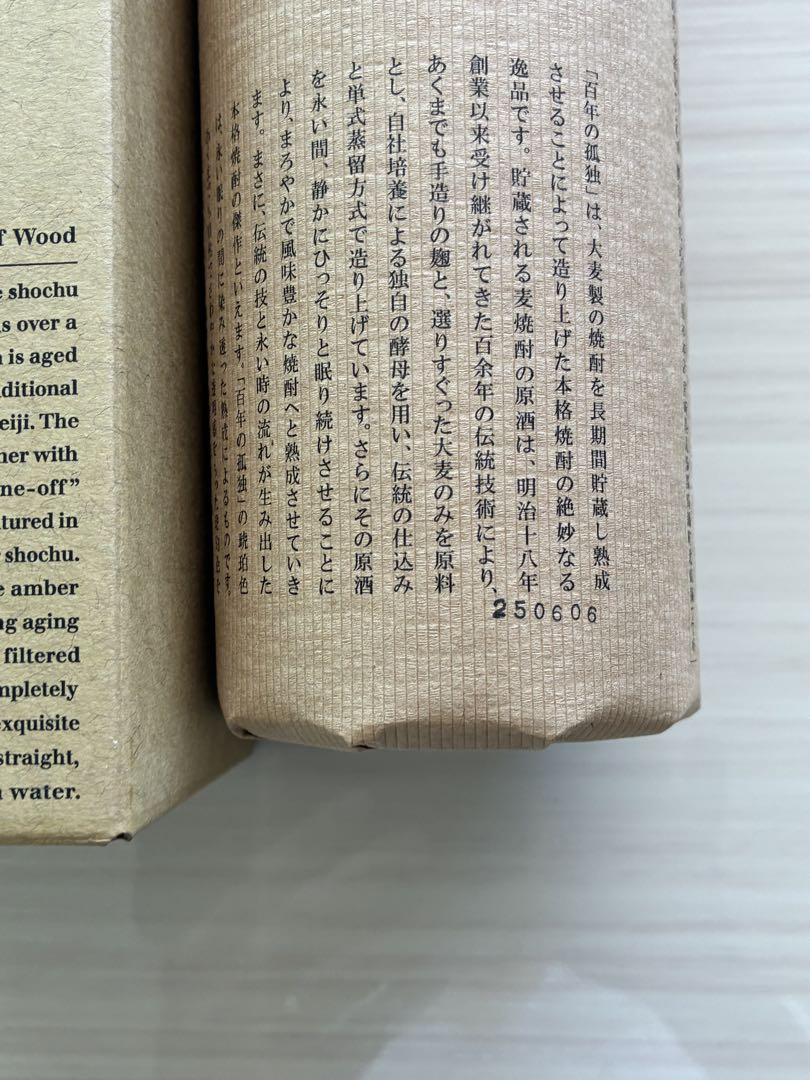 f Wood
e shochu
s over a
n is aged
ditional
eiji. The
ner with
ne-off”
tured in
shochu.
e amber
ng aging
filtered
mpletely
exquisite
straight,
water.
「百年の孤独」は、大麦製の焼酎を長期間貯蔵し熟成
させることによって造り上げた本格焼酎の絶妙なる
逸品です。貯蔵される麦焼酎の原酒は、明治十八年
創業以来受け継がれてきた百余年の伝統技術により、
あくまでも手造りの麹と、選りすぐった大麦のみを原料
とし、自社培養による独自の酵母を用い、伝統の仕込み
と単式蒸留方式で造り上げています。さらにその原酒
を永い間、静かにひっそりと眠り続けさせることに
より、まろやかで風味豊かな焼酎へと熟成させていき
ます。まさに、伝統の技と永い時の流れが生み出した
本格焼酎の傑作といえます。「百年の孤独」の琥珀色
は、永い眠りの間に染み透った熟成によるものです。
250606